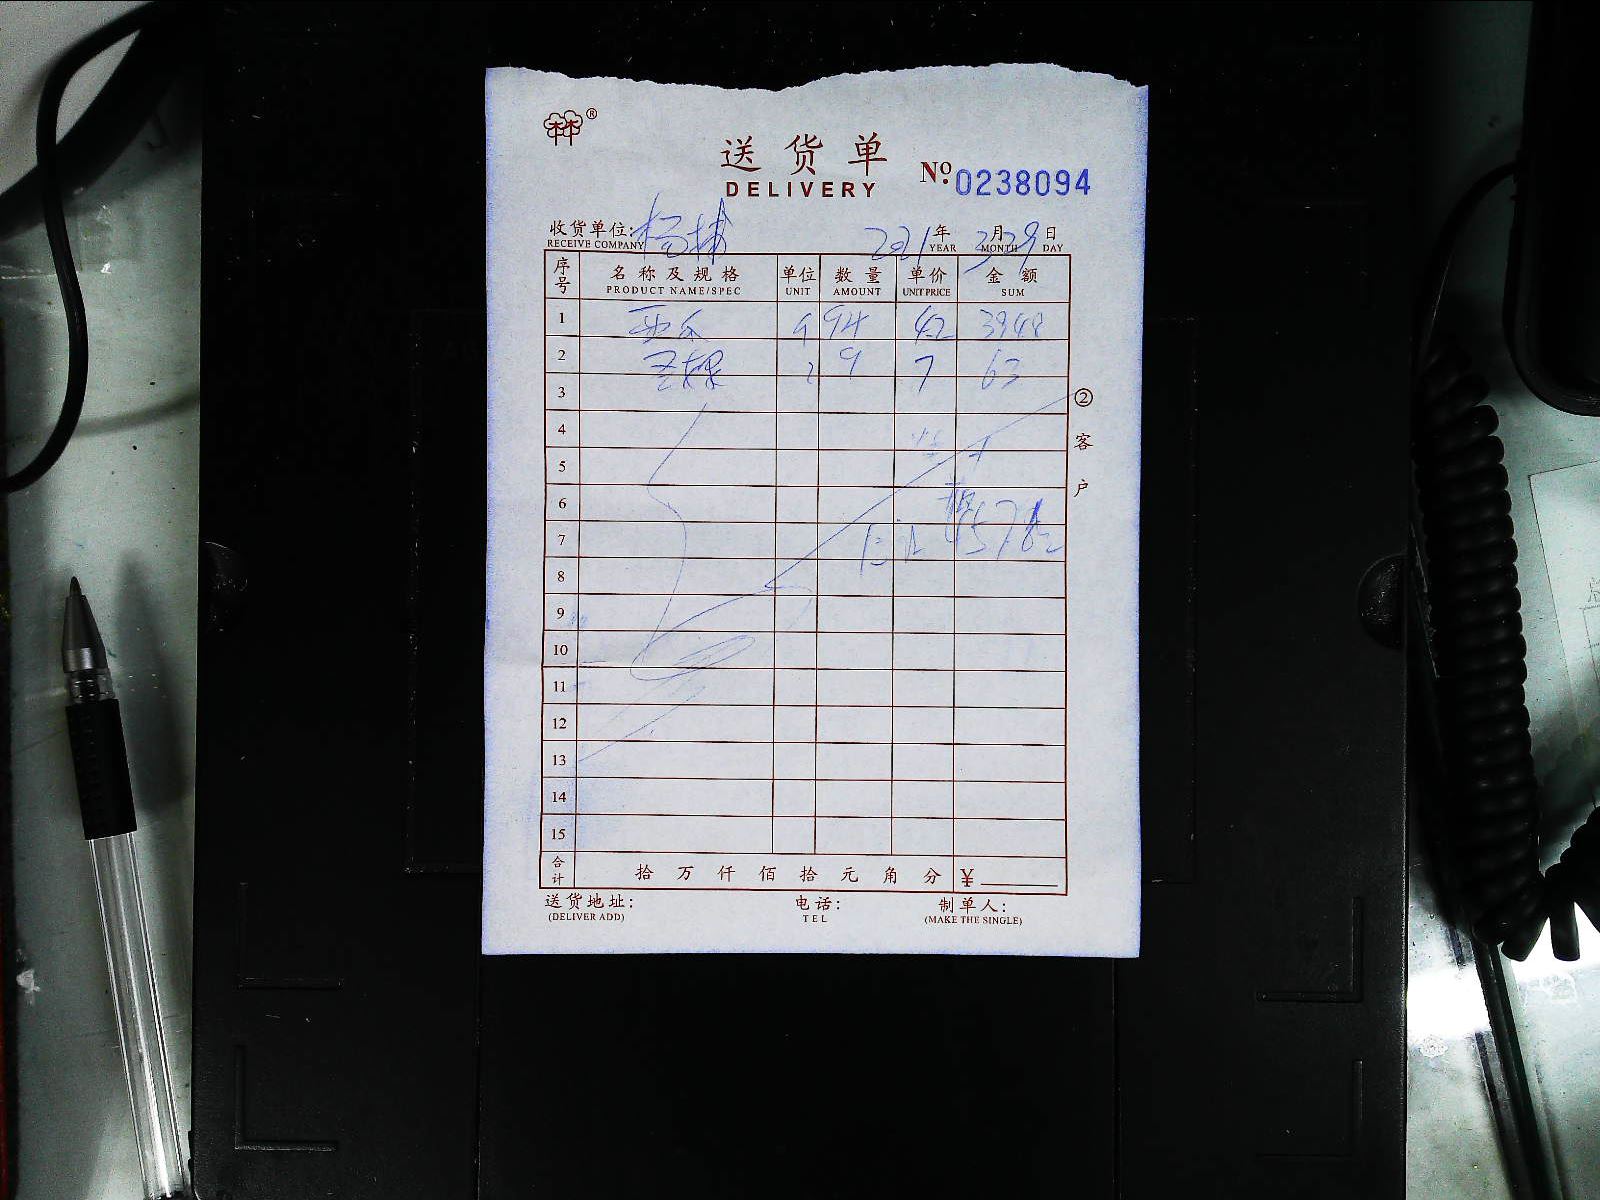 林®
送货单
DELIVERY
No. 0238094
收货单位: 杨
RECEIVE COMPANY
2021 年 3 月 29 日
YEAR MONTH DAY
序号 名称及规格 单位 数量 单价 金额
PRODUCT NAME/SPEC UNIT AMOUNT UNIT PRICE SUM
1 西瓜 94 42 3948
2 9 7 63
3
4
5
6
7
8
9
10
11
12
13
14
15
合计 拾 万 仟 佰 拾 元 角 分 ¥
送货地址: 电话: 制单人:
(DELIVER ADD) TEL (MAKE THE SINGLE)
② 客户